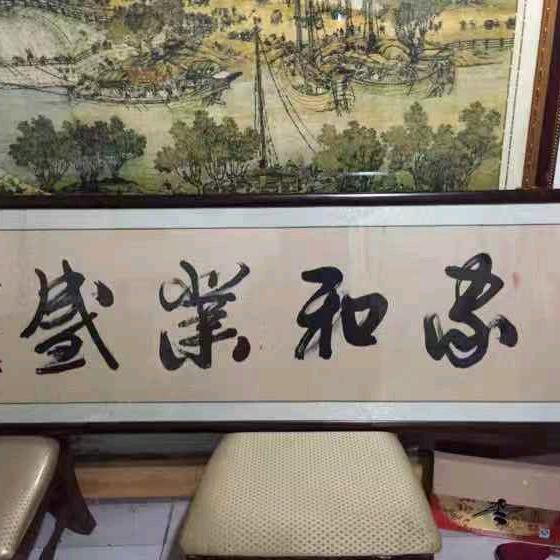 家和業盛